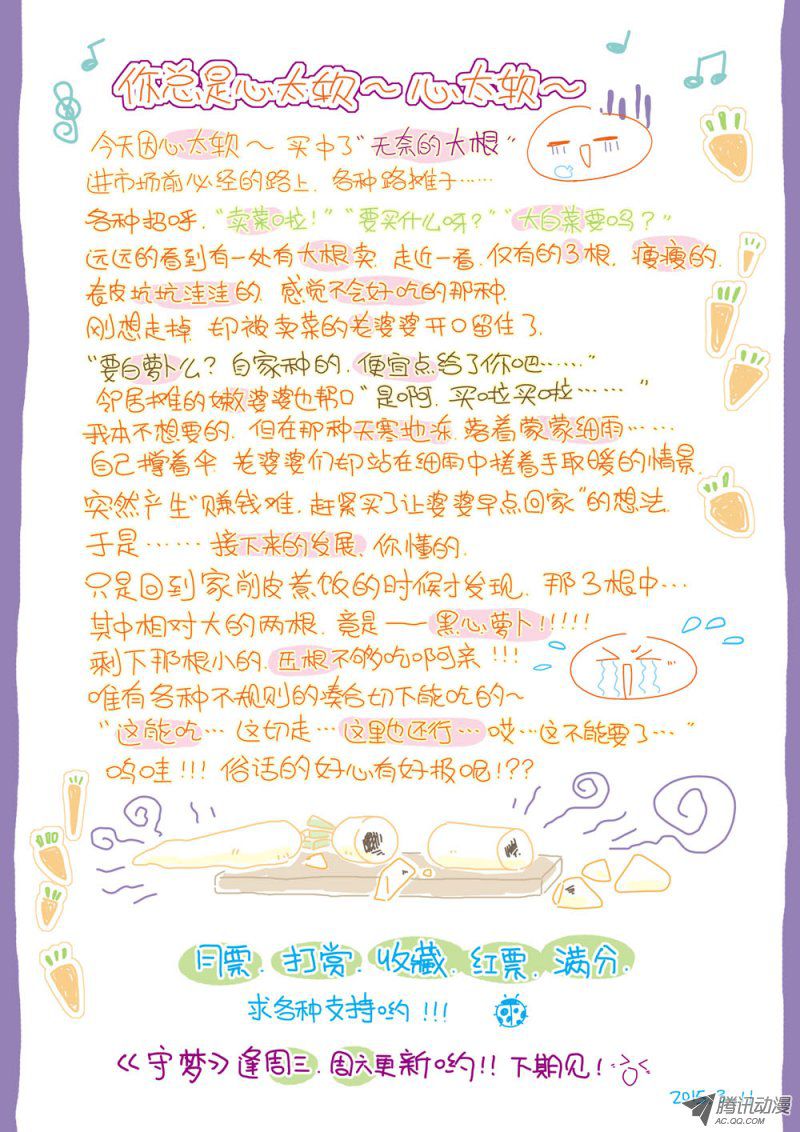 你总是心太软～心太软～
今天因心太软～ 买中了"无奈的大根"
进市场前必经的路上.各种路摊子……
各种招呼."卖菜啦!""要买什么呀?""大白菜要吗?"
远远的看到有一处有大根卖.走近一看.仅有的3根.瘦瘦的.
表皮坑坑洼洼的.感觉不会好吃的那种.
刚想走掉.却被卖菜的老婆婆开口留住了.
"要白萝卜么?自家种的.便宜点给了你吧……"
邻居摊的嫩婆婆也帮口"是啊.买啦买啦……"
我本不想要的.但在那种天寒地冻.落着蒙蒙细雨……
自己撑着伞.老婆婆们却站在细雨中搓着手取暖的情景.
突然产生"赚钱难.赶紧买了让婆婆早点回家"的想法.
于是……接下来的发展.你懂的.
只是回到家削皮煮饭的时候才发现.那3根中…
其中相对大的两根.竟是——黑心萝卜!!!!!
剩下那根小的.压根不够吃啊亲!!!
唯有各种不规则的凑合切下能吃的~
"这能吃…这切走…这里也还行…哎…这不能要了…"
呜哇!!!俗话的好心有好报呢!??
月票.打赏.收藏.红票.满分.
求各种支持哟!!!
《守梦》逢周三.周六更新哟!!下期见!
腾讯动漫
AC.QQ.COM